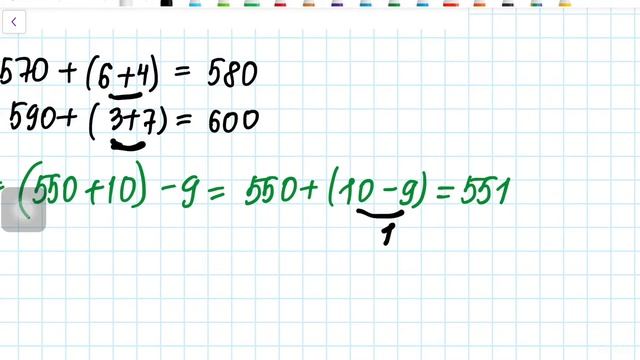 570 + (6+4) = 580
590 + (3+7) = 600
= (550 + 10) - 9 = 550 + (10 - 9) = 551
1